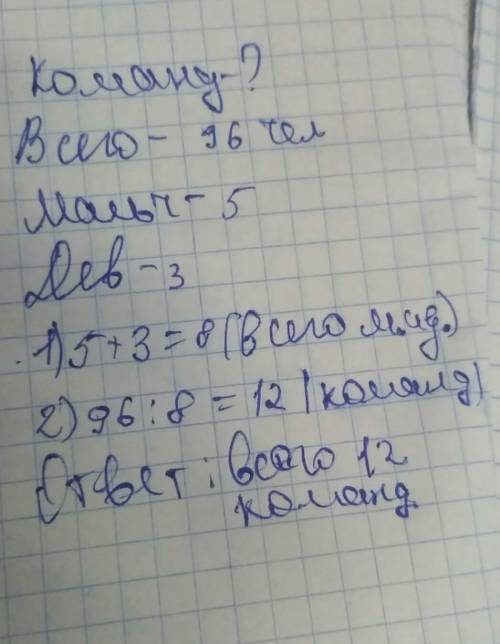 Команд-?
Всего- 96 чел
Мальч- 5
Дев-3
1)5+3=8(всего м.и.д.)
2)96:8=12(команд)
Ответ: всего 12
команд.